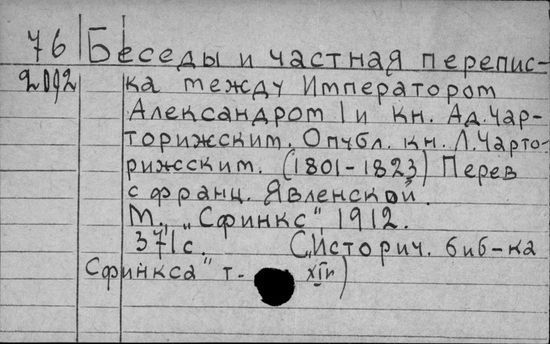 76 Беседы и частная перепис-
2092 ка между Императором
Александром I и кн. Ад. Чар-
торижским. Опубл. кн. Л. Чарто-
рижсским. (1801-1823) Перев
с франц. Явленской.
М., „Сфинкс", 1912.
371с. („Историч. биб-ка
Сфинкса" т.